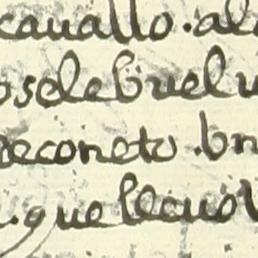 cauallo. al
oselebuelu
reconeto. bn
. que lleuo